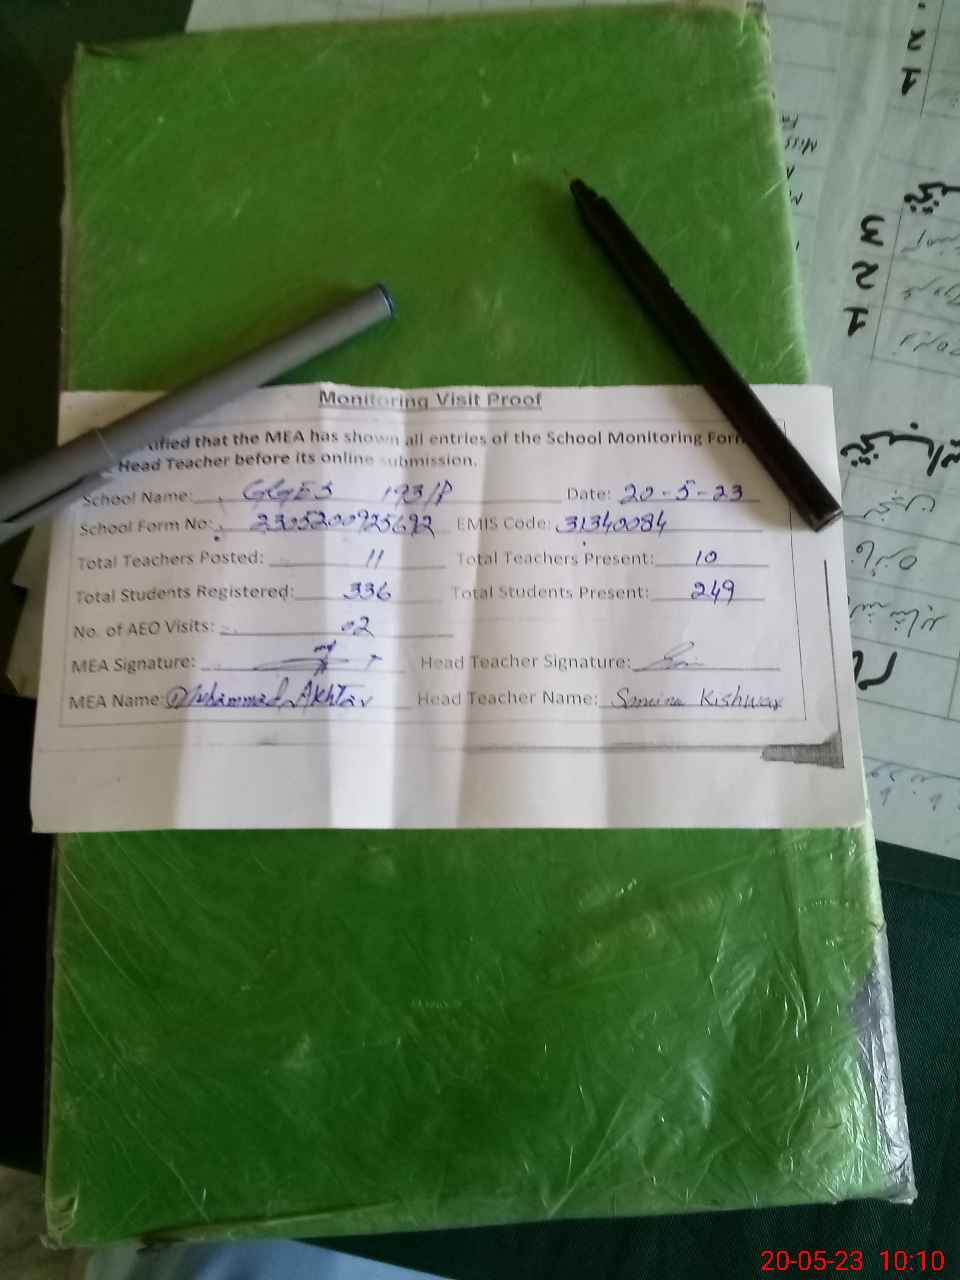 Monitoring Visit Proof
tified that the MEA has shown all entries of the School Monitoring Form
Head Teacher before its online submission.
School Name: GGES 193/P Date: 20-5-23
School Form No: 2305200925692 EMIS Code: 31340084
Total Teachers Posted: 11 Total Teachers Present: 10
Total Students Registered: 336 Total Students Present: 249
No. of AEO Visits: 02
MEA Signature: Head Teacher Signature:
MEA Name: Muhammad Akhtar Head Teacher Name: Samina Kishwar
2
1
Miss
3
2
1
20-05-23 10:10